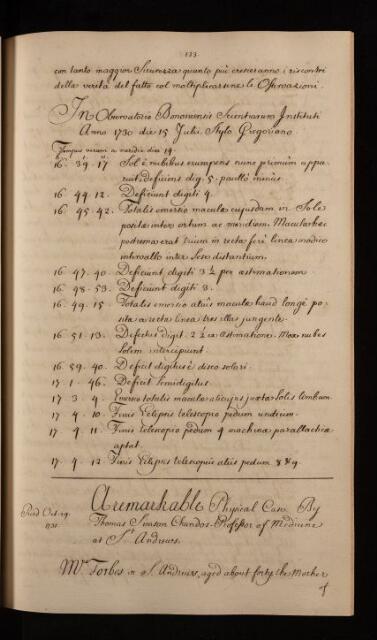 133
con tanto maggior Sicurezza quanto più cresceranno i riscontri
della verità del fatto col moltiplicarsene le Osservazioni.
In Observatorio Bononiensis Scientiarum Instituti
Anno 1730 die 15 Julii Stylo Gregoriano.
Tempus verum a meridie diei 14.
16h 39' 17" Sol è nubibus erumpens nunc primùm appa
ruit deficiens dig. 5. paullò minùs.
16 44. 12. Deficiunt digiti 4.
16 45. 42. Totalis emersio maculæ cujusdam in Sole
positæ inter ortum ac meridiem. Macula hæc
postrema erat trium in recta ferè linea modico
intervallo inter sese distantium.
16 47. 40. Deficiunt digiti 3 ½ per æstimationem
16 48. 53. Deficiunt digiti 3.
16 49. 15. Totalis emersio alius maculæ haud longè po
sitæ a recta linea tres illas jungente.
16 51. 13. Defectus digit. 2 ½ ex æstimatione. Mox nubes
Solem intercipiunt.
16 59. 40. Deficit digitus è disco solari.
17 1. 46. Deficit semidigitus.
17 3. 4. Emersio totalis maculæ alicujus juxta Solis limbum.
17 4. 10. Finis Eclipsis telescopio pedum undecim.
17 4. 11. Finis telescopio pedum 4 machinæ parallacticæ
aptat.
17. 4. 12. Finis Eclipsis telescopiis aliis pedum 8 & 9.
Read Oct. 29.
1731.
A remarkable Physical Case. By
Thomas Simson Chandos-Professor of Medicine
at St. Andrews.
Mrs. Forbes in St. Andrews, aged about forty, the Mother
of